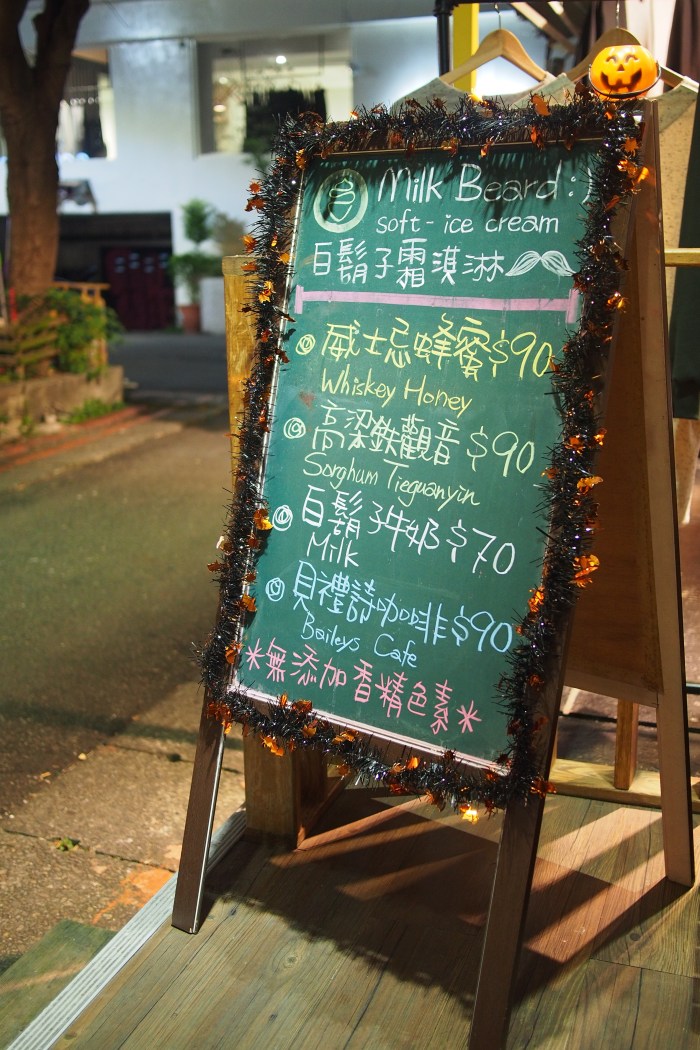 Milk Beard :)
soft-ice cream
白鬍子霜淇淋
威士忌蜂蜜$90
Whiskey Honey
高梁鉄觀音$90
Sorghum Tieguanyin
白鬍子牛奶$70
Milk
貝禮詩咖啡$90
Baileys Cafe
*無添加香精色素*